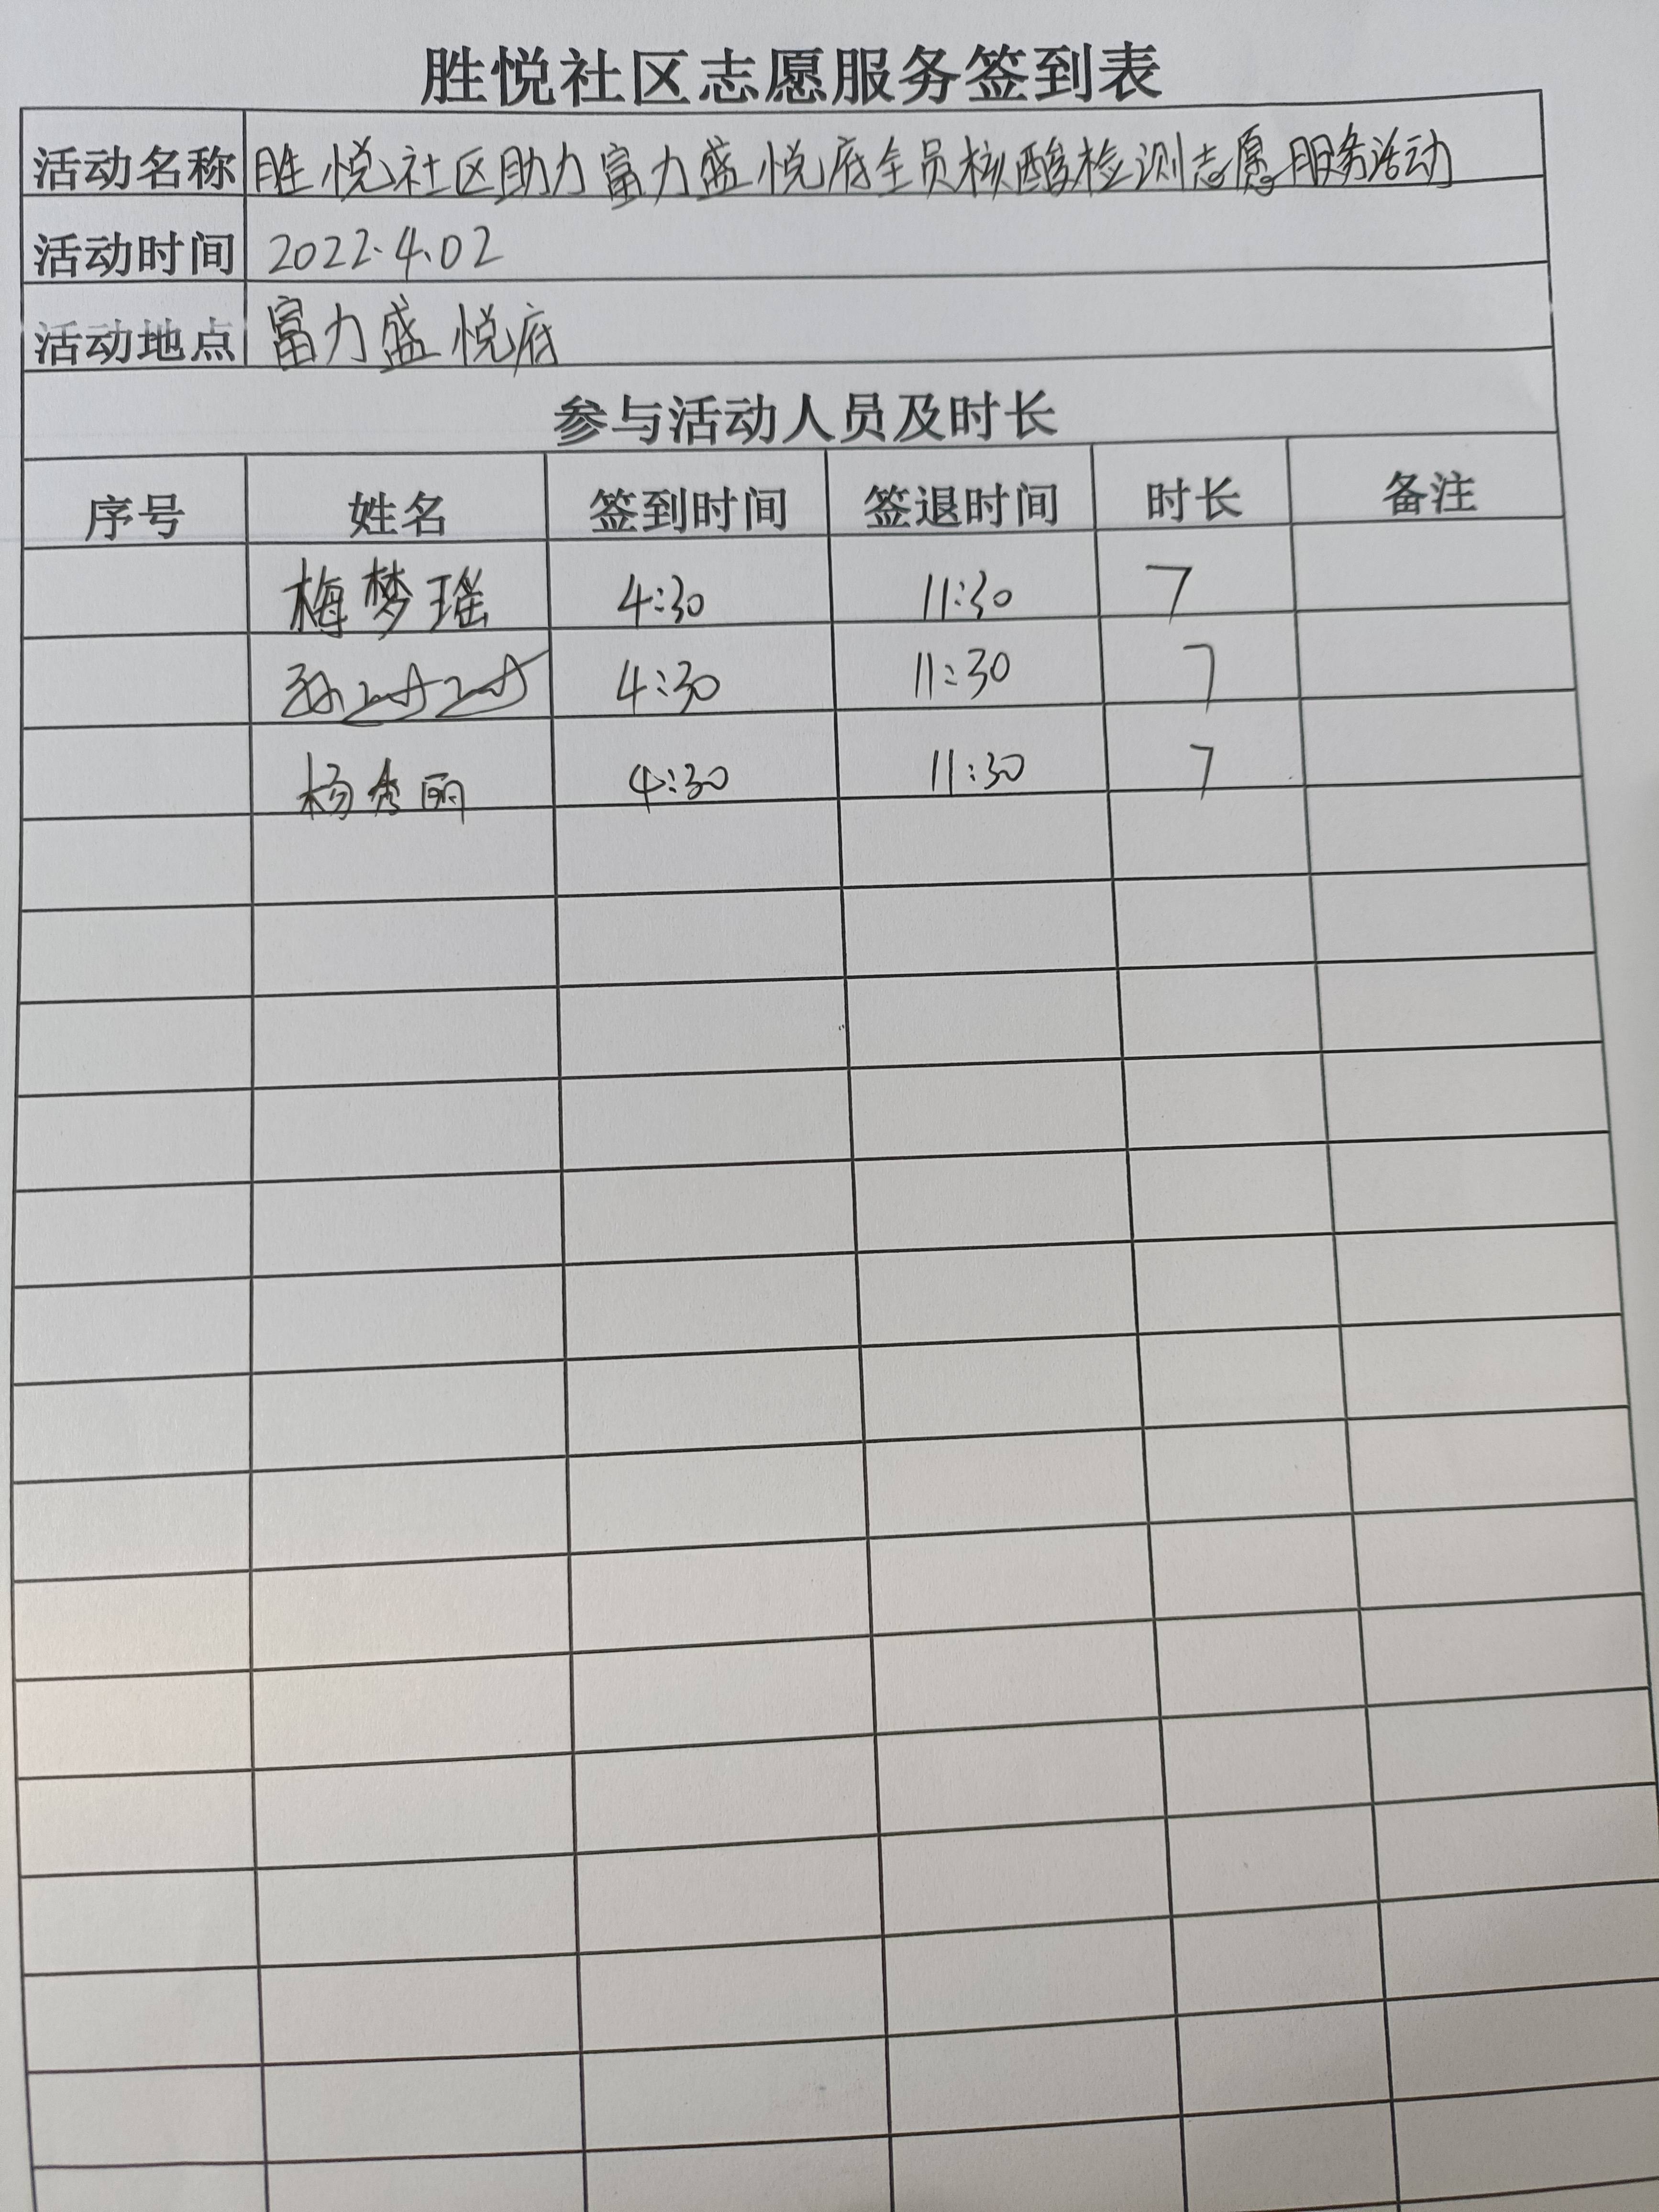 胜悦社区志愿服务签到表
活动名称 胜悦社区助力富力盛悦府全员核酸检测志愿服务活动
活动时间 2022.4.02
活动地点 富力盛悦府
参与活动人员及时长
序号 姓名 签到时间 签退时间 时长 备注
梅梦瑶 4:30 11:30 7
孙 4:30 11:30 7
杨秀丽 4:30 11:30 7